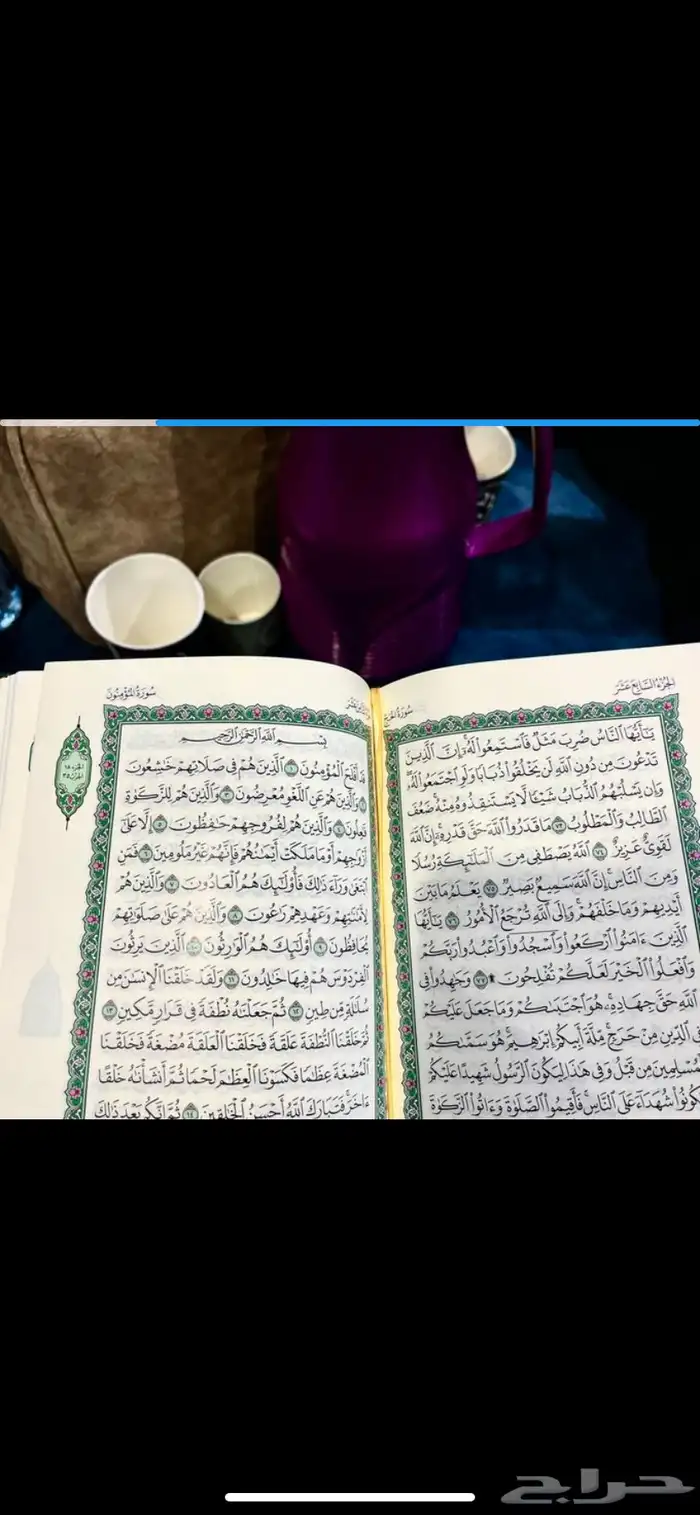 الجزء السابع عشر
سورة الحج
يَٰٓأَيُّهَا ٱلنَّاسُ ضُرِبَ مَثَلٌ فَٱسْتَمِعُوا۟ لَهُۥٓ إِنَّ ٱلَّذِينَ
تَدْعُونَ مِن دُونِ ٱللَّهِ لَن يَخْلُقُوا۟ ذُبَابًا وَلَوِ ٱجْتَمَعُوا۟ لَهُۥ
وَإِن يَسْلُبْهُمُ ٱلذُّبَابُ شَيْـًٔا لَّا يَسْتَنقِذُوهُ مِنْهُ ضَعُفَ
ٱلطَّالِبُ وَٱلْمَطْلُوبُ ٧٣ مَا قَدَرُوا۟ ٱللَّهَ حَقَّ قَدْرِهِۦٓ إِنَّ ٱللَّهَ
لَقَوِىٌّ عَزِيزٌ ٧٤ ٱللَّهُ يَصْطَفِى مِنَ ٱلْمَلَٰٓئِكَةِ رُسُلًا
وَمِنَ ٱلنَّاسِ إِنَّ ٱللَّهَ سَمِيعٌۢ بَصِيرٌ ٧٥ يَعْلَمُ مَا بَيْنَ
أَيْدِيهِمْ وَمَا خَلْفَهُمْ وَإِلَى ٱللَّهِ تُرْجَعُ ٱلْأُمُورُ ٧٦ يَٰٓأَيُّهَا
ٱلَّذِينَ ءَامَنُوا۟ ٱرْكَعُوا۟ وَٱسْجُدُوا۟ وَٱعْبُدُوا۟ رَبَّكُمْ
وَٱفْعَلُوا۟ ٱلْخَيْرَ لَعَلَّكُمْ تُفْلِحُونَ ۩ ٧٧ وَجَٰهِدُوا۟ فِى
ٱللَّهِ حَقَّ جِهَادِهِۦ هُوَ ٱجْتَبَىٰكُمْ وَمَا جَعَلَ عَلَيْكُمْ
فِى ٱلدِّينِ مِنْ حَرَجٍ مِّلَّةَ أَبِيكُمْ إِبْرَٰهِيمَ هُوَ سَمَّىٰكُمُ
ٱلْمُسْلِمِينَ مِن قَبْلُ وَفِى هَٰذَا لِيَكُونَ ٱلرَّسُولُ شَهِيدًا عَلَيْكُمْ
وَتَكُونُوا۟ شُهَدَآءَ عَلَى ٱلنَّاسِ فَأَقِيمُوا۟ ٱلصَّلَوٰةَ وَءَاتُوا۟ ٱلزَّكَوٰةَ
سورة المؤمنون
الجزء ١٨
الحزب ٣٥
بِسْمِ ٱللَّهِ ٱلرَّحْمَٰنِ ٱلرَّحِيمِ
قَدْ أَفْلَحَ ٱلْمُؤْمِنُونَ ١ ٱلَّذِينَ هُمْ فِى صَلَاتِهِمْ خَٰشِعُونَ
٢ وَٱلَّذِينَ هُمْ عَنِ ٱللَّغْوِ مُعْرِضُونَ ٣ وَٱلَّذِينَ هُمْ لِلزَّكَوٰةِ
فَٰعِلُونَ ٤ وَٱلَّذِينَ هُمْ لِفُرُوجِهِمْ حَٰفِظُونَ ٥ إِلَّا عَلَىٰٓ
أَزْوَٰجِهِمْ أَوْ مَا مَلَكَتْ أَيْمَٰنُهُمْ فَإِنَّهُمْ غَيْرُ مَلُومِينَ ٦ فَمَنِ
ٱبْتَغَىٰ وَرَآءَ ذَٰلِكَ فَأُو۟لَٰٓئِكَ هُمُ ٱلْعَادُونَ ٧ وَٱلَّذِينَ هُمْ
لِأَمَٰنَٰتِهِمْ وَعَهْدِهِمْ رَٰعُونَ ٨ وَٱلَّذِينَ هُمْ عَلَىٰ صَلَوَٰتِهِمْ
يُحَافِظُونَ ٩ أُو۟لَٰٓئِكَ هُمُ ٱلْوَٰرِثُونَ ١٠ ٱلَّذِينَ يَرِثُونَ
ٱلْفِرْدَوْسَ هُمْ فِيهَا خَٰلِدُونَ ١١ وَلَقَدْ خَلَقْنَا ٱلْإِنسَٰنَ مِن
سُلَٰلَةٍ مِّن طِينٍ ١٢ ثُمَّ جَعَلْنَٰهُ نُطْفَةً فِى قَرَارٍ مَّكِينٍ ١٣
ثُمَّ خَلَقْنَا ٱلنُّطْفَةَ عَلَقَةً فَخَلَقْنَا ٱلْعَلَقَةَ مُضْغَةً فَخَلَقْنَا
ٱلْمُضْغَةَ عِظَٰمًا فَكَسَوْنَا ٱلْعِظَٰمَ لَحْمًا ثُمَّ أَنشَأْنَٰهُ خَلْقًا
ءَاخَرَ فَتَبَارَكَ ٱللَّهُ أَحْسَنُ ٱلْخَٰلِقِينَ ١٤ ثُمَّ إِنَّكُم بَعْدَ ذَٰلِكَ
حراج